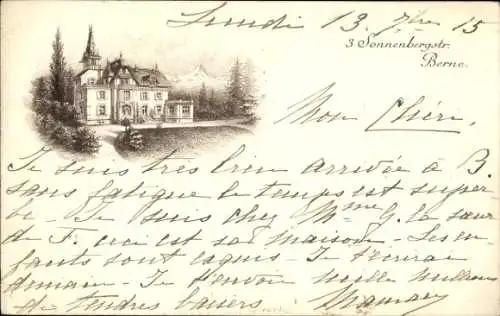 Lundi 13 7bre 15
3 Sonnenbergstr.
Berne.
Mon Chéri,
Je suis très bien arrivée à B.
sans fatigue le temps est super-
be - Je suis chez Mme G. la sœur
de F. ceci est sa maison - Les en-
fants sont exquis - Je t'écrirai
demain - Je t'envoie mille millions
de tendres baisers Maman